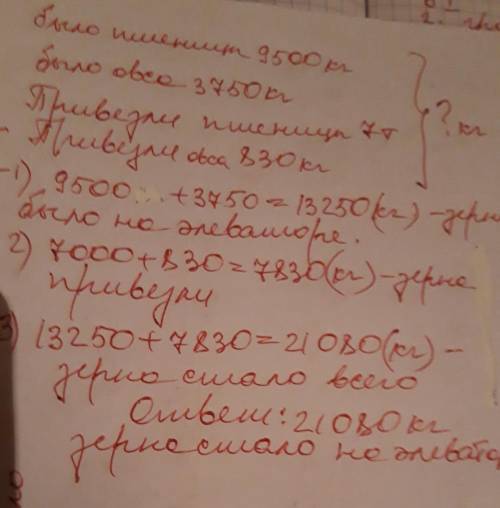 было пшениц 9500 кг
было овса 3750 кг
Привезли пшеницы 7т
Привезли овса 830 кг
? кг
1) 9500 +3750=13250(кг)-зерн
было на элеваторе.
2) 7000+830=7830(кг)-зерна
привезли
3) 13250+7830=21080(кг)-
зерна стало всего
Ответ: 21080 кг
зерна стало на элеватор